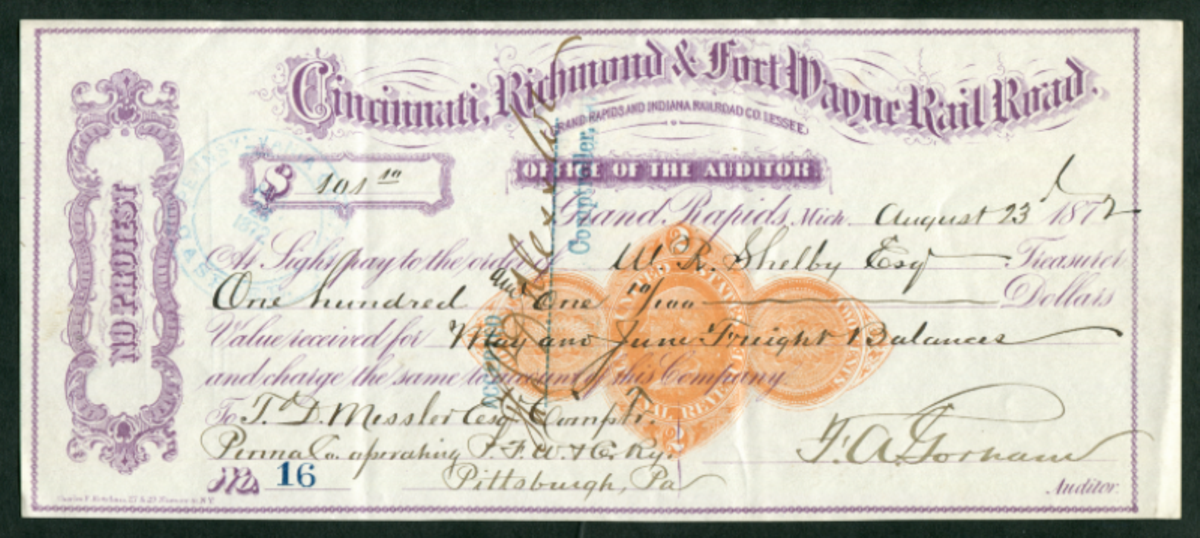 Cincinnati, Richmond & Fort Wayne Rail Road.
GRAND RAPIDS AND INDIANA RAILROAD CO. LESSEE
OFFICE OF THE AUDITOR
NO PROTEST
$ 101 10
Grand Rapids, Mich. August 23d 1872
At Sight pay to the order of W. R. Shelby Esq Treasurer
One hundred and One 10/100 Dollars
Value received for May and June Freight Balances
and charge the same to account of this Company
To T. D. Messler Esq Comptr.
Penna Co. operating P. F. W. & C. Ry.
Pittsburgh, Pa
No 16
F. A. Gorham
Auditor.
Comptroller,
UNITED STATES
INTERNAL REVENUE
2